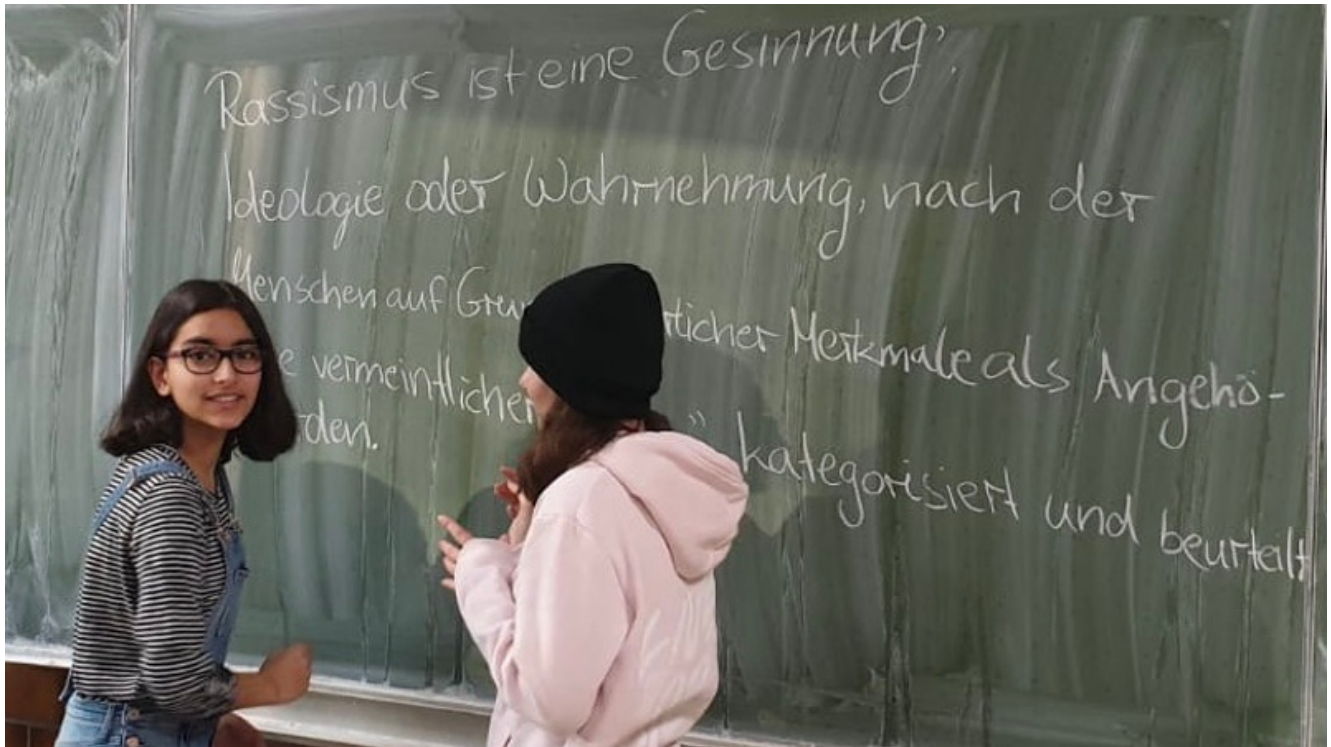 Rassismus ist eine Gesinnung,
Ideologie oder Wahrnehmung, nach der
Menschen auf Merkmale als Angehö-
vermeintlicher " kategorisiert und beurteilt